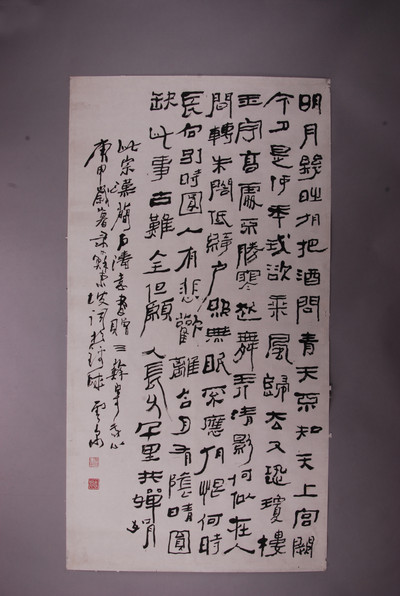 明月幾時有把酒問青天不知天上宮闕
今夕是何年我欲乘風歸去又恐瓊樓
玉宇高處不勝寒起舞弄清影何似在人
間轉朱閣低綺戶照無眠不應有恨何時
長向別時圓人有悲歡離合月有陰晴圓
缺此事古難全但願人長久千里共嬋娟
此宗漢簡石濤意書贈三韓
庚申歲暮录蘇東坡詞於